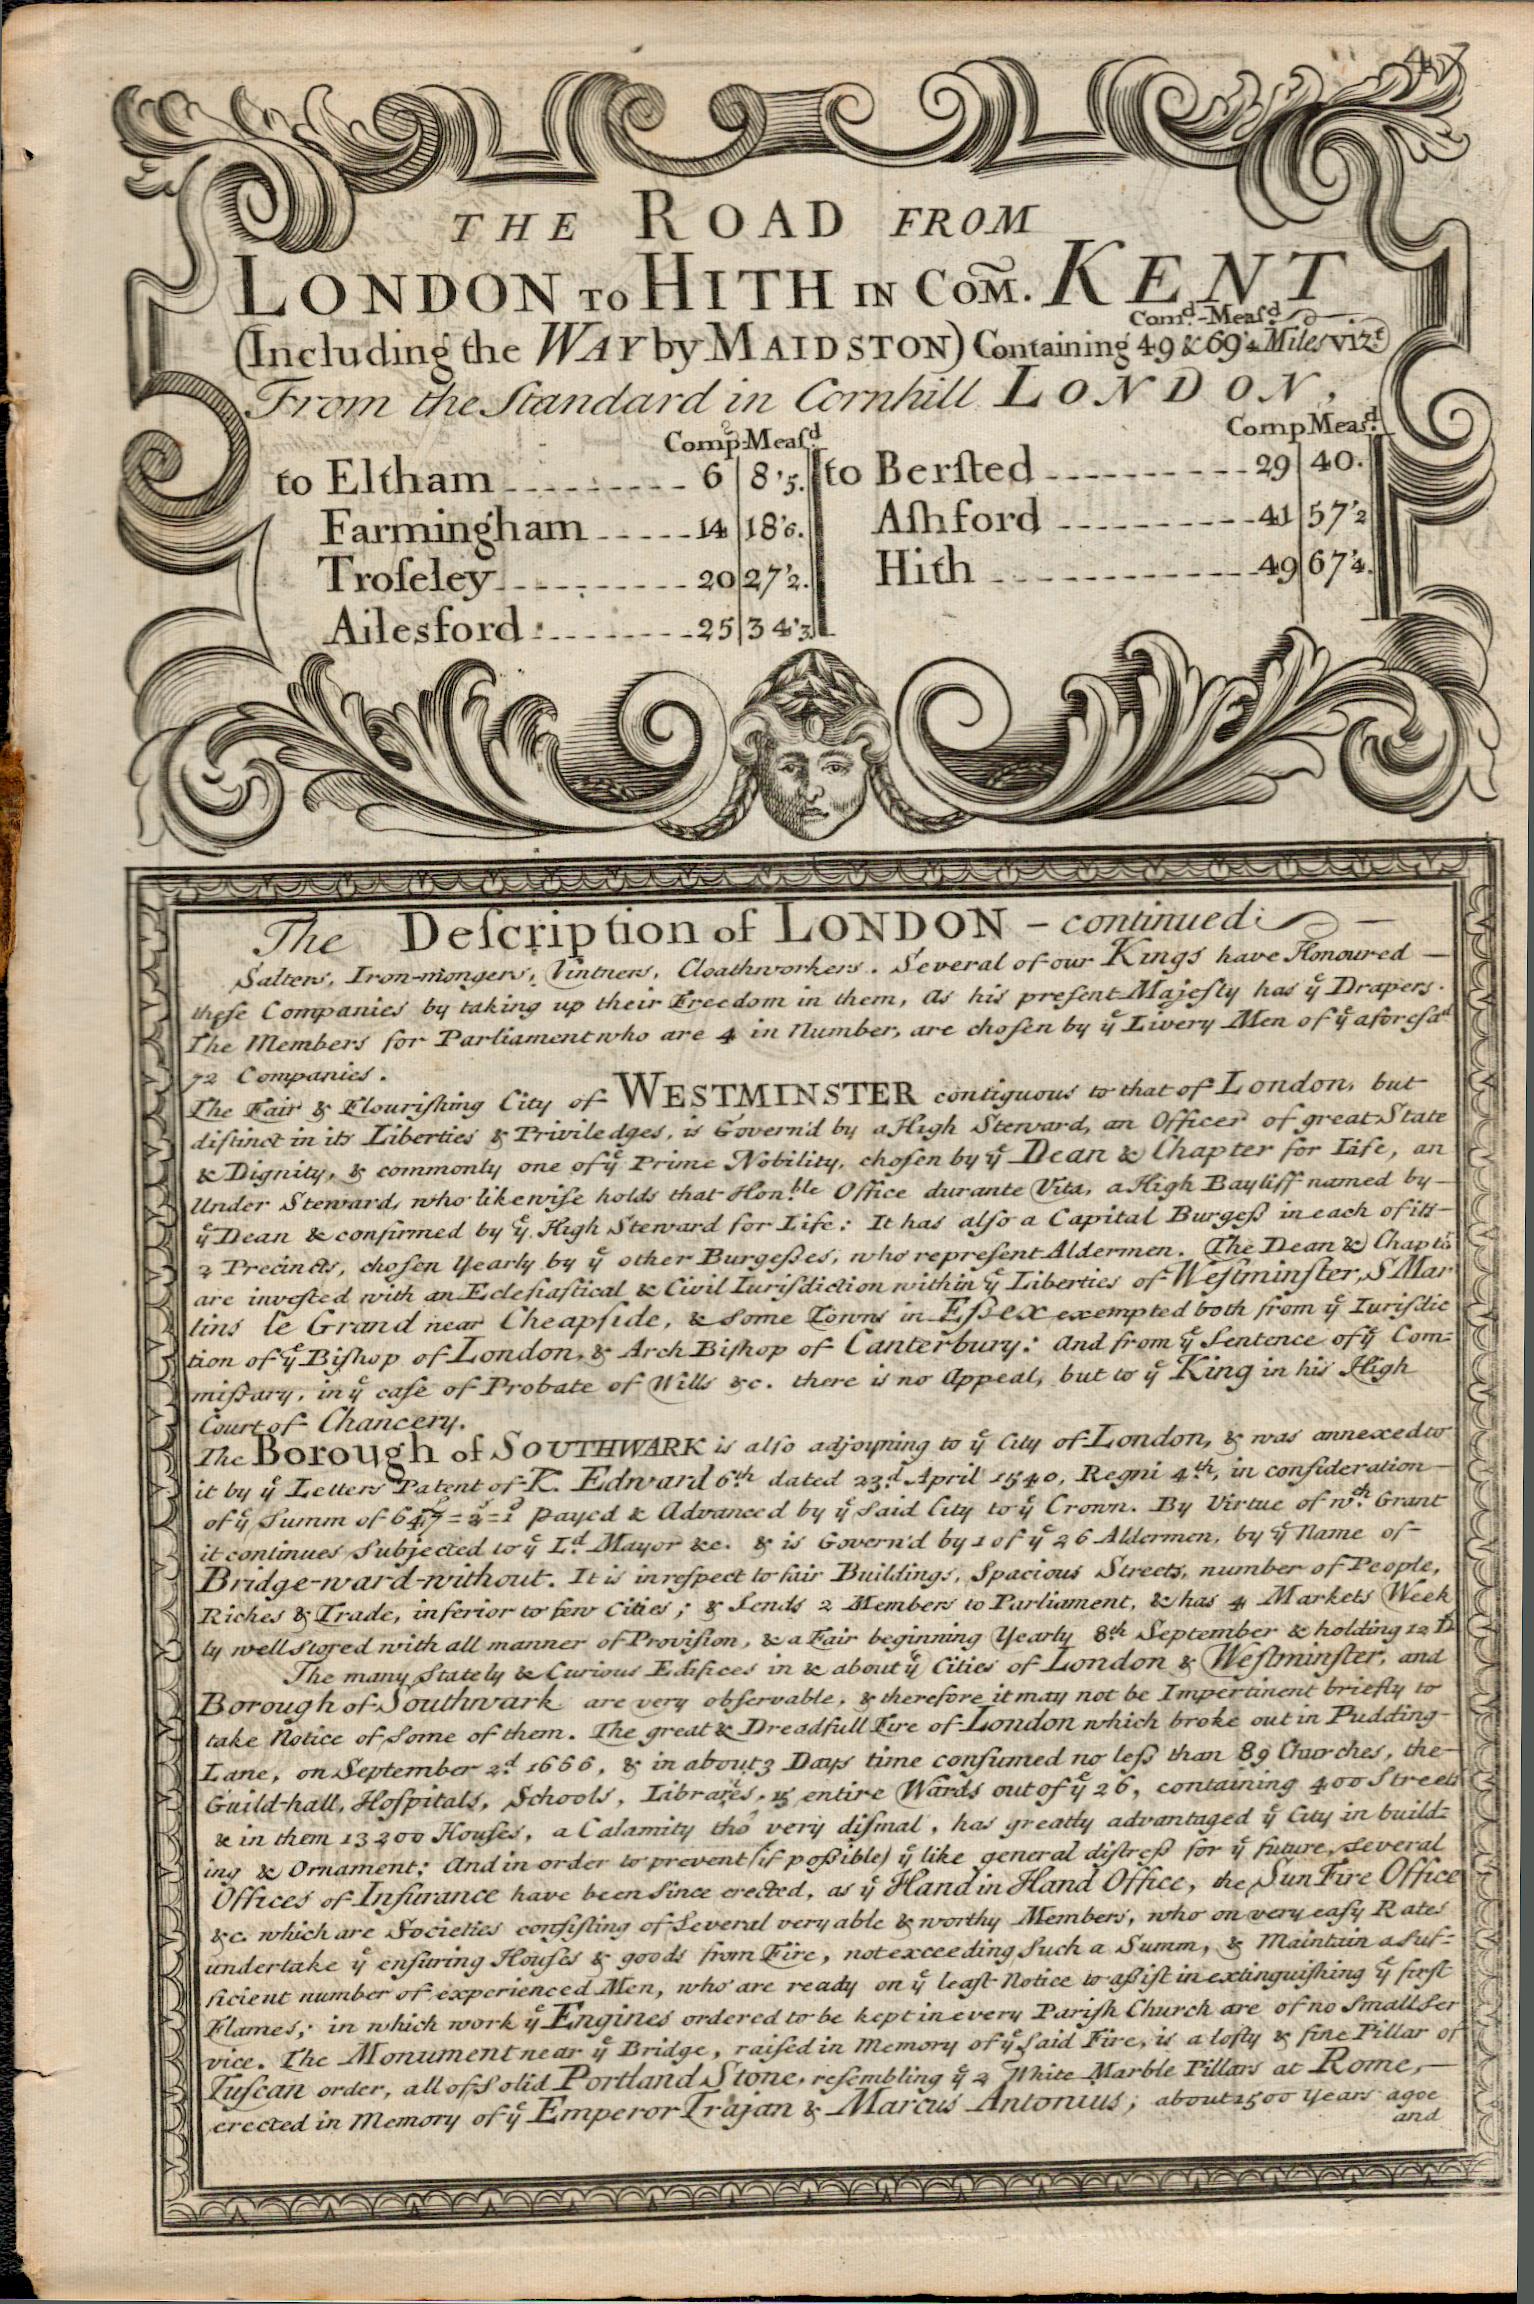 47
THE ROAD FROM
LONDON TO HITH IN COM̃. KENT
Comd.-Meaſd.
(Including the WAY by MAIDSTON) Containing 49 & 69'4 Miles vizt.
From the Standard in Cornhill LONDON,
Comp Meaſd
to Eltham 6 8'5.
Farmingham 14 18'6.
Troſeley 20 27'2.
Ailesford 25 34'3
Comp Meas.d
to Berſted 29 40.
Aſhford 41 57'2
Hith 49 67'4.
The Deſcription of LONDON - continued
Salters, Iron-mongers, Vintners, Cloathworkers. Several of our Kings have Honoured
theſe Companies by taking up their Freedom in them, as his preſent Majeſty has ye Drapers.
The Members for Parliament who are 4 in Number, are choſen by ye Livery Men of ye aforesad
72 Companies.
The Fair & Flouriſhing City of WESTMINSTER contiguous to that of London, but
diſtinct in its Liberties & Priviledges, is Govern'd by a High Steward, an Officer of great State
& Dignity, & commonly one of ye Prime Nobility, choſen by ye Dean & Chapter for Life, an
Under Steward, who likewiſe holds that Honble Office durante Vita, a High Bayliff named by
ye Dean & confirmed by ye High Steward for Life: It has also a Capital Burgeſs in each of its
2 Precincts, choſen Yearly by ye other Burgeſses, who repreſent Aldermen. The Dean & Chaptr
are inveſted with an Ecleſiaſtical & Civil Iuriſdiction within ye Liberties of Weſtminſter, S Mar
tins le Grand near Cheapſide, & some Towns in Eſsex exempted both from ye Iuriſdic
tion of ye Biſhop of London, & Arch Biſhop of Canterbury: And from ye Sentence of ye Com=
miſsary, in ye caſe of Probate of Wills &c. there is no Appeal, but to ye King in his High
Court of Chancery.
The Borough of SOUTHWARK is alſo adjoyning to ye City of London, & was annexed to
it by ye Letters Patent of K. Edward 6th dated 23d. April 1540, Regni 4th, in conſideration
of ye Summ of 647=2=1 payed & Advanced by ye Said City to ye Crown. By Virtue of wch Grant
it continues Subjected to ye Ld Mayor &c. & is Govern'd by 1 of ye 26 Aldermen, by ye Name of
Bridge-ward-without. It is in reſpect to fair Buildings, Spacious Streets, number of People,
Riches & Trade, inferior to few Cities; & Sends 2 Members to Parliament, & has 4 Markets Week
ly well stored with all manner of Proviſion, & a Fair beginning Yearly 8th September & holding 12 D
The many Stately & Curious Edifices in & about ye Cities of London & Weſtminſter, and
Borough of Southwark are very obſervable, & therefore it may not be Impertinent briefly to
take Notice of Some of them. The great & Dreadfull Fire of London which broke out in Pudding-
Lane, on September 2d 1666, & in about 3 Days time conſumed no leſs than 89 Churches, the
Guild-hall, Hoſpitals, Schools, Librares, 15 entire Wards out of ye 26, containing 400 Streets
& in them 13200 Houſes, a Calamity tho' very diſmal, has greatly advantaged ye City in build=
ing & Ornament: And in order to prevent (if poſsible) ye like general diſtreſs for ye future, Several
Offices of Inſurance have been Since erected, as ye Hand in Hand Office, the Sun Fire Office
&c. which are Societies conſiſting of Several very able & worthy Members, who on very eaſy Rates
undertake ye enſuring Houſes & goods from Fire, not exceeding Such a Summ, & Maintain a Suf=
ficient number of experienced Men, who are ready on ye leaſt Notice to aſsiſt in extinguiſhing ye firſt
Flames; in which work ye Engines ordered to be kept in every Pariſh Church are of no Small Ser
vice. The Monument near ye Bridge, raiſed in Memory of ye Said Fire, is a lofty & fine Pillar of
Tuſcan order, all of Solid Portland Stone, reſembling ye 2 White Marble Pillars at Rome,
erected in Memory of ye Emperor Trajan & Marcus Antonius; about 1500 Years agoe
and